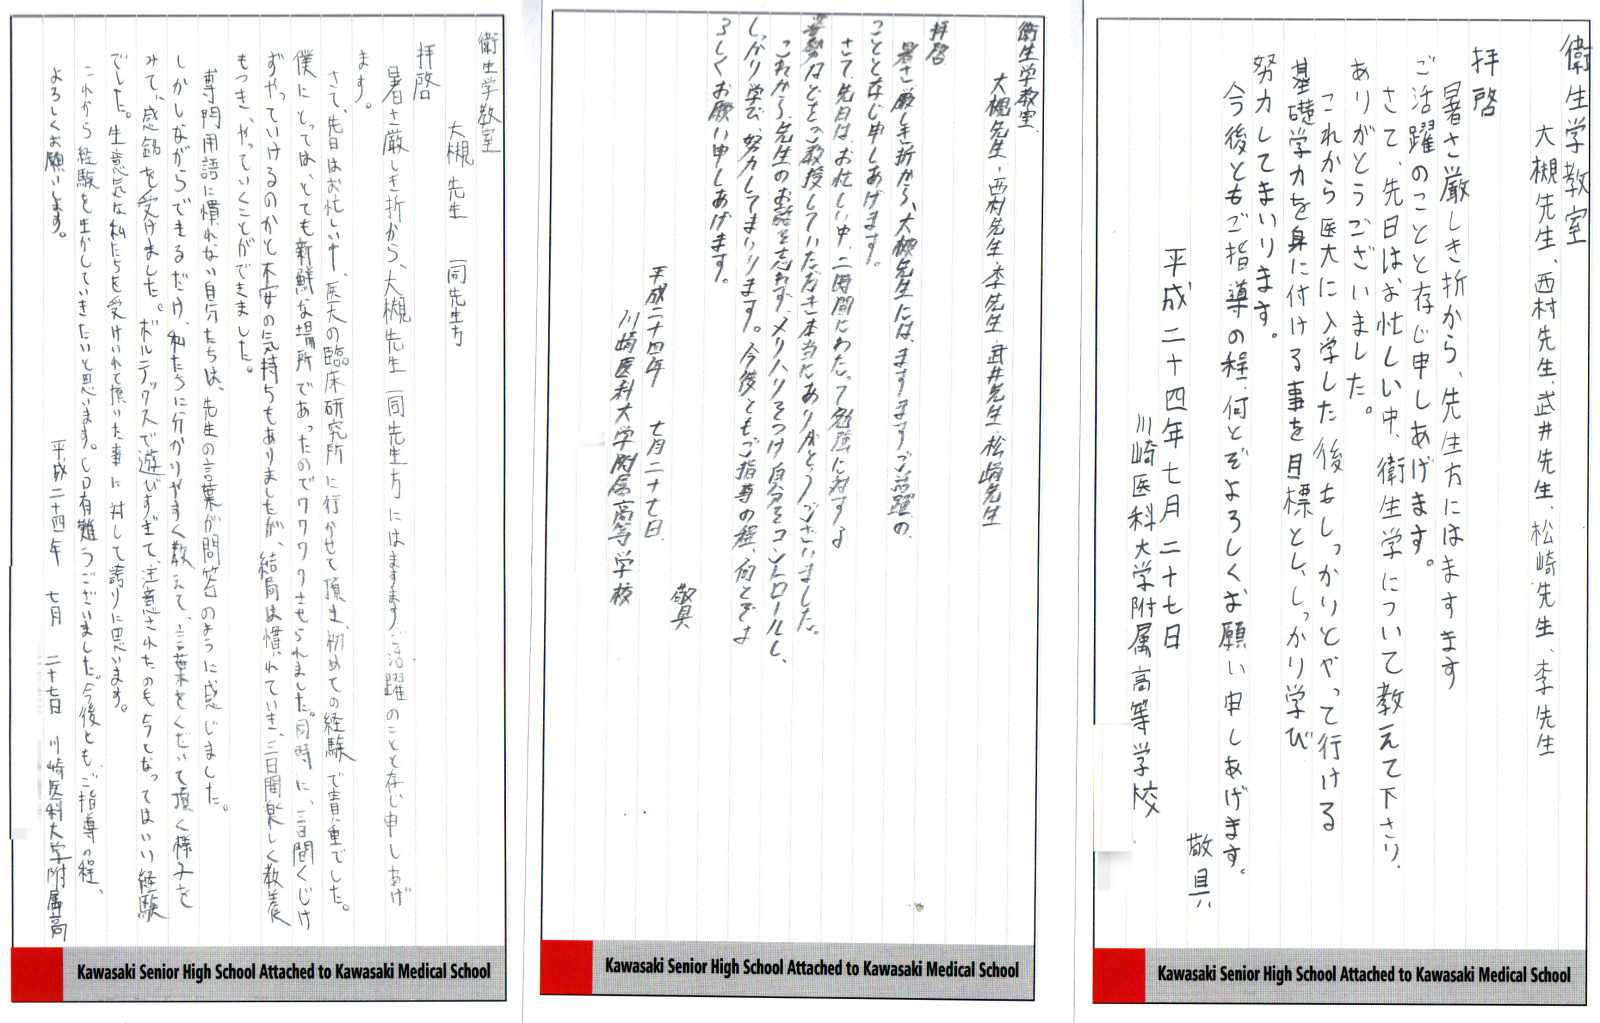 衛生学教室
大槻先生 一同先生方
拝啓
暑さ厳しき折から、大槻先生一同先生方にはますますご活躍のことと存じ申しあげ
ます。
さて、先日はお忙しい中、医大の臨床研究所に行かせて頂き、初めての経験で貴重でした。
僕にとっては、とても新鮮な場所であったのでワクワクさせられました。同時に、三日間くじけ
ずやっていけるのかと不安の気持ちもありましたが、結局は慣れていき、三日間楽しく教養
もつき、やっていくことができました。
専門用語に慣れない自分たちは、先生の言葉が問答のように感じました。
しかしながらできるだけ、私たちに分かりやすく教えて、言葉をくだいて頂く様子を
みて、感銘を受けました。ボルテックスで遊びすぎて、注意されたのも今となってはいい経験
でした。生意気な私たちを受けいれて頂いた事に対して誇りに思います。
これから経験を生かしていきたいと思います。有難うございました。今後とも、ご指導の程、
よろしくお願いします。
平成二十四年 七月 二十七日 川崎医科大学附属高
Kawasaki Senior High School Attached to Kawasaki Medical School
衛生学教室
大槻先生・西村先生・李先生・武井先生・松崎先生
拝啓
暑さ厳しき折から、大槻先生には、ますますご活躍の
ことと存じ申しあげます。
さて、先日は、お忙しい中、二時間にわたって勉強に対する
姿勢などをご教授していただき本当にありがとうございました。
これから、先生のお話を忘れず、メリハリをつけ自分をコントロールし、
しっかり学び、努力してまいります。今後ともご指導の程、何とぞよ
ろしくお願い申しあげます。
敬具
平成二十四年 七月二十七日
川崎医科大学附属高等学校
Kawasaki Senior High School Attached to Kawasaki Medical School
衛生学教室
大槻先生、西村先生、武井先生、松崎先生、李先生
拝啓
暑さ厳しき折から、先生方にはますます
ご活躍のことと存じ申しあげます。
さて、先日はお忙しい中、衛生学について教えて下さり、
ありがとうございました。
これから医大に入学した後もしっかりとやって行ける
基礎学力を身に付ける事を目標とし、しっかり学び
努力してまいります。
今後ともご指導の程、何とぞよろしくお願い申しあげます。
敬具
平成二十四年七月二十七日
川崎医科大学附属高等学校
Kawasaki Senior High School Attached to Kawasaki Medical School